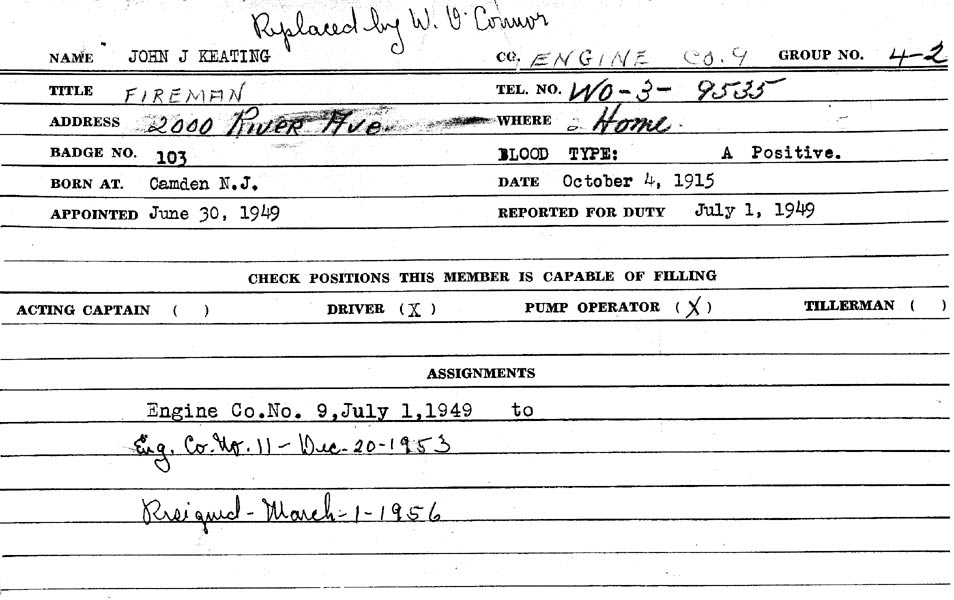 Replaced by W. O'Connor
NAME JOHN J KEATING CO. ENGINE CO. 9 GROUP NO. 4-2
TITLE FIREMAN TEL. NO. WO-3-9535
ADDRESS 2000 RIVER AVE. WHERE Home.
BADGE NO. 103 BLOOD TYPE: A Positive.
BORN AT. Camden N.J. DATE October 4, 1915
APPOINTED June 30, 1949 REPORTED FOR DUTY July 1, 1949
CHECK POSITIONS THIS MEMBER IS CAPABLE OF FILLING
ACTING CAPTAIN ( ) DRIVER (X) PUMP OPERATOR (X) TILLERMAN ( )
ASSIGNMENTS
Engine Co.No. 9,July 1,1949 to
Eng. Co. No. 11 - Dec-20-1953
Resigned - March-1-1956